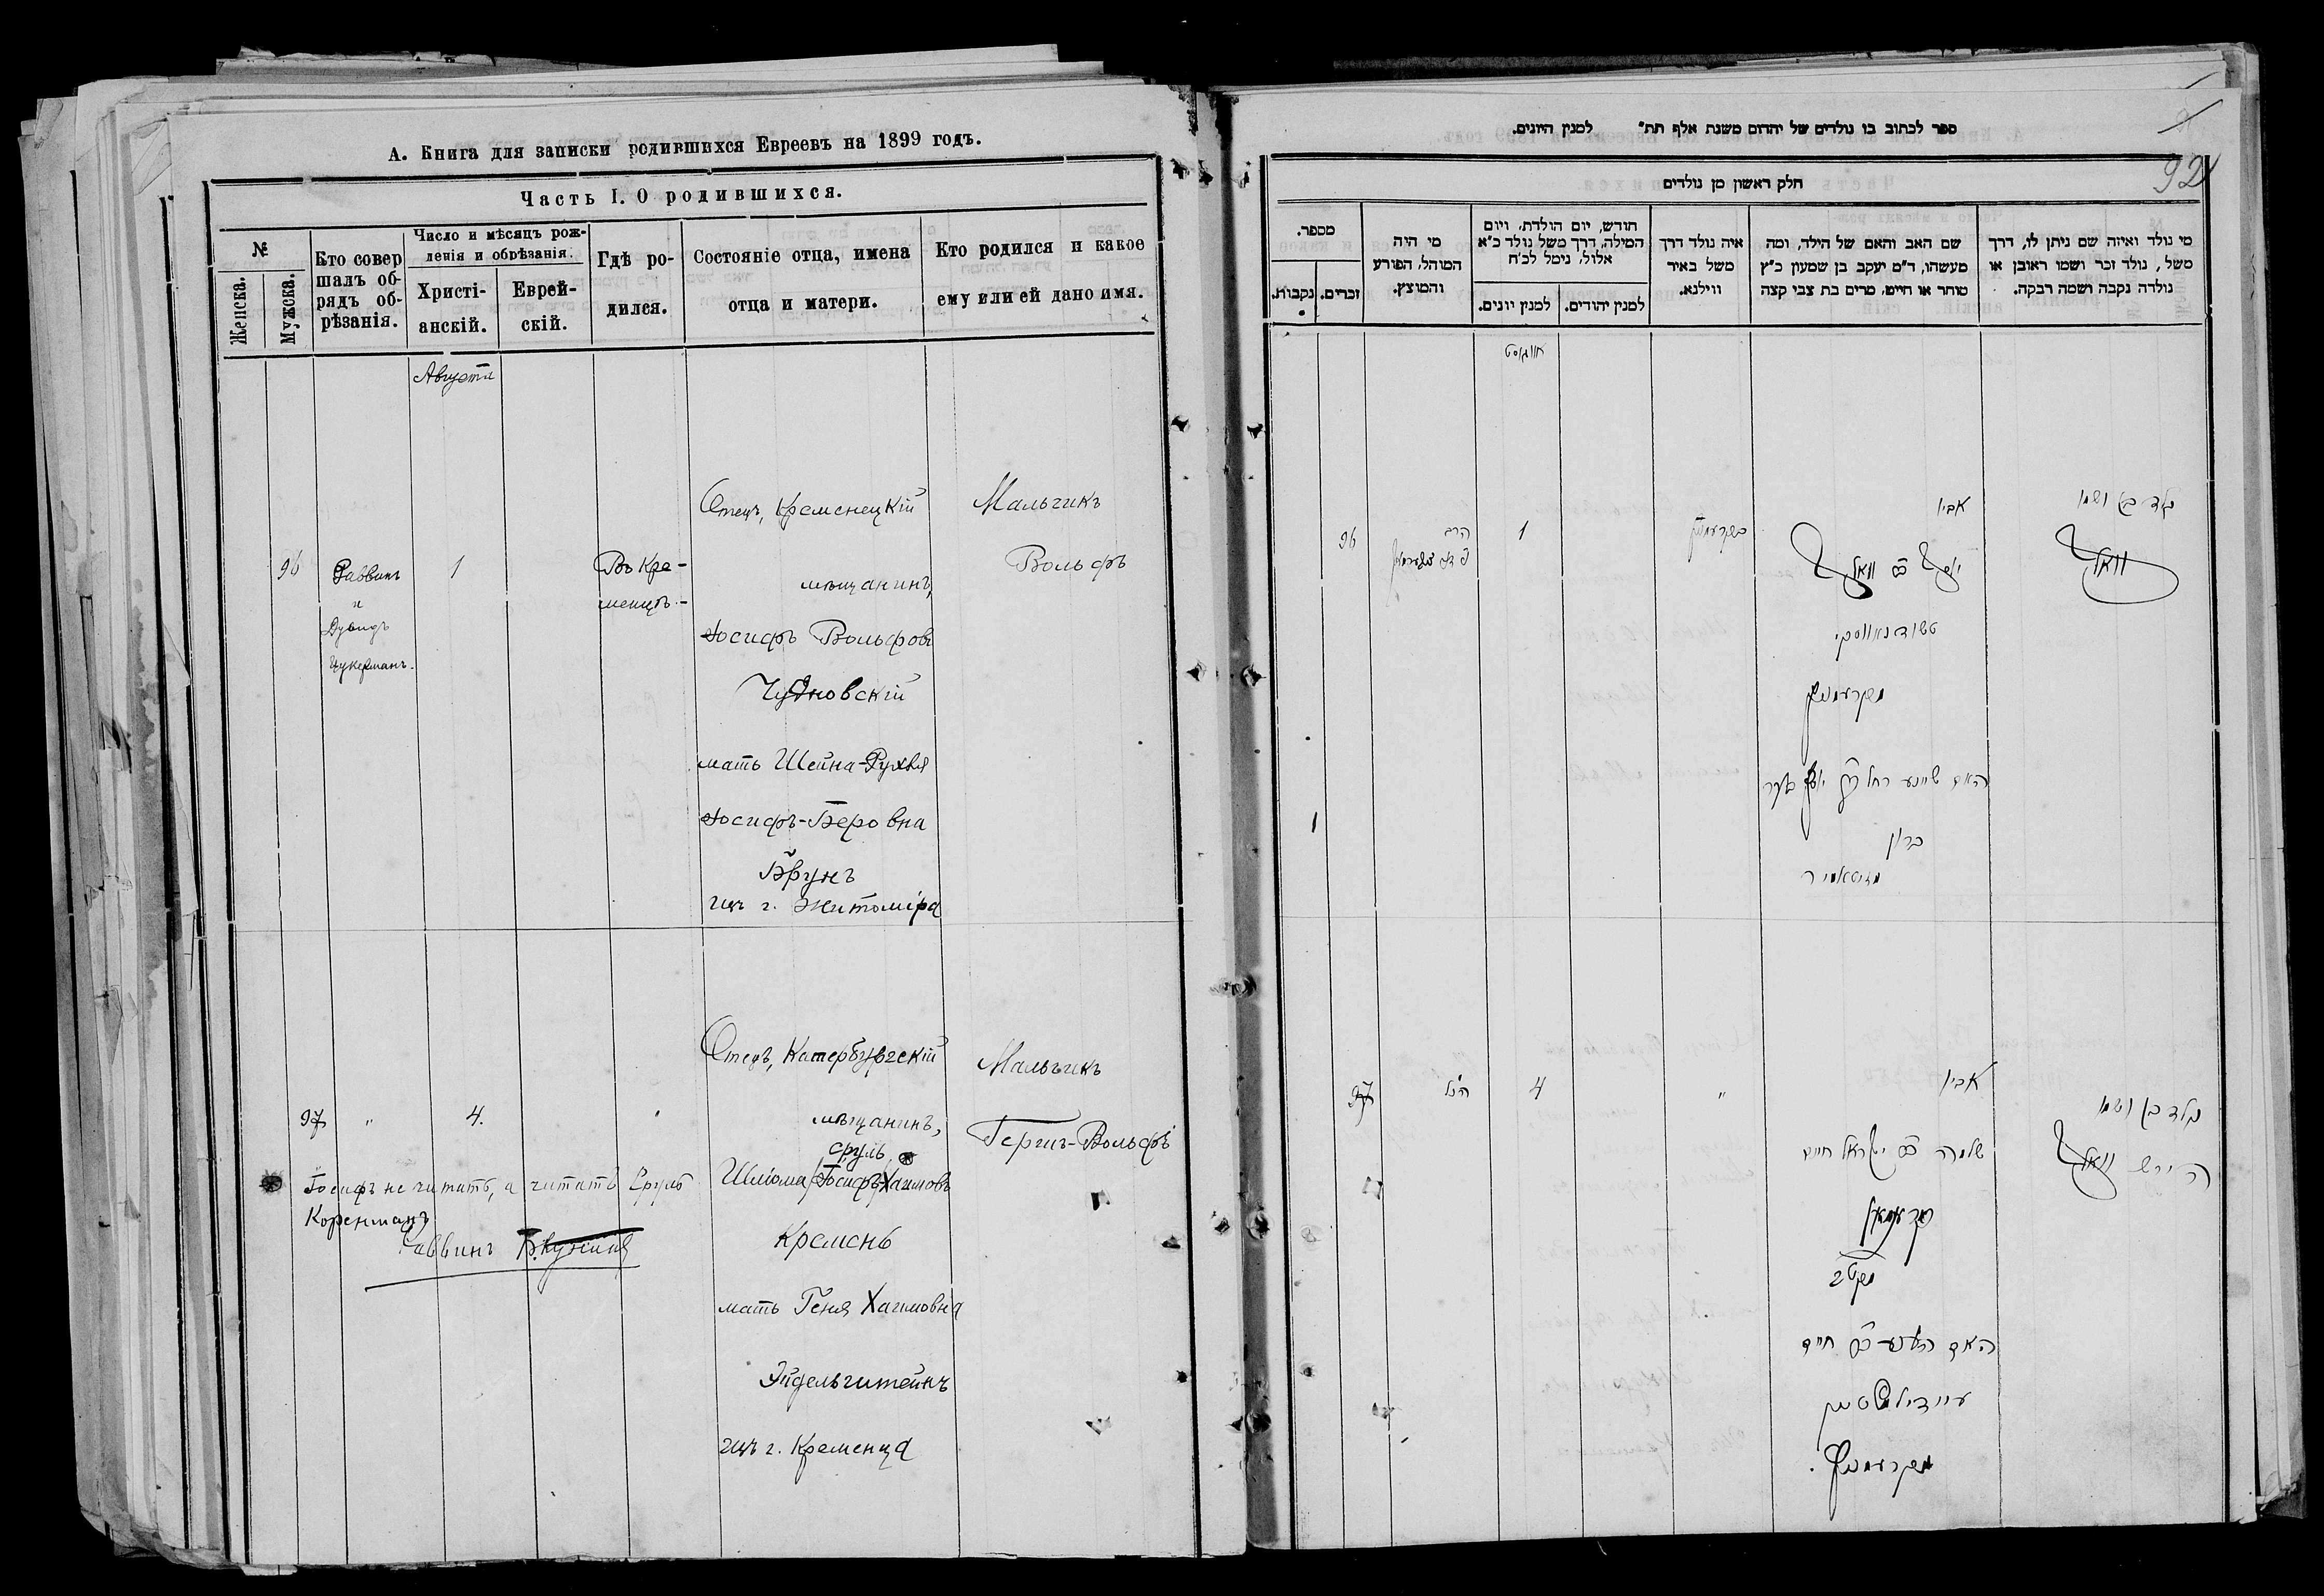 А. Книга для записки родившихся Евреевъ на 1899 годъ.
Часть I. О родившихся.
№
Женска.
Мужска.
Кто совер
шалъ об-
рядъ об-
рѣзанія.
Число и мѣсяцъ рож-
денія и обрѣзанія.
Христі-
анскій.
Еврей-
скій.
Гдѣ ро-
дился.
Состояніе отца, имена
отца и матери.
Кто родился и какое
ему или ей дано имя.
Августа
96
Раввинъ
и
Дувидъ
Цукерманъ.
1
Въ Кре-
менцѣ.-
Отецъ, Кременецкій
мѣщанинъ,
Іосифъ Вольфовъ
Чудновскій
мать Шейна-Рухля
Іосифъ-Беровна
Брунъ
изъ г. Житоміра
Мальчикъ
Вольфъ
97
"
4.
Отецъ, Катербургскій
мѣщанинъ,
Сруль
Шліома Іосифъ-Хаимовъ
Кремень
мать Геня Хаимовна
Эйдельштейнъ
изъ г. Кременца
Мальчикъ
Гершъ-Вольфъ
Іосифъ не читать, а читать Сруль
Коренманъ
Раввинъ
ספר לכתוב בו נולדים של יהדום משנת אלף תת״ למנין היונים.
92
חלק ראשון מן נולדים
מספר.
נקבות.
זכרים.
מי היה
המוהל, הפורע
והמוצץ.
חודש, יום הולדת, ויום
המילה, דרך משל נולד כ״א
אלול, נימל לכ״ח
למנין יונים.
למנין יהודים.
איה נולד דרך
משל באיר
ווילנא.
שם האב והאם של הילד, ומה
מעשהו, ד״מ יעקב בן שמעון כ״ץ
סוחר או חייט, מרים בת צבי קצה
מי נולד ואיזה שם ניתן לו, דרך
משל, נולד זכר ושמו ראובן או
נולדה נקבה ושמה רבקה.
אווגוסט
96
הרב
1
בקרעמניץ
אביו
יוסף ב״ר וואלף
טשודנאווסקי
מקרעמניץ
האם שיינע רחל
ברון
מזיטאמיר
נולד בן ושמו
וואלף
1
97
הנ״ל
4
"
אביו
שלמה ב״ר ישראל חיים
האם
חיים
עיידילשטיין
מקרעמניץ.
נולד בן ושמו
הירש וואלף